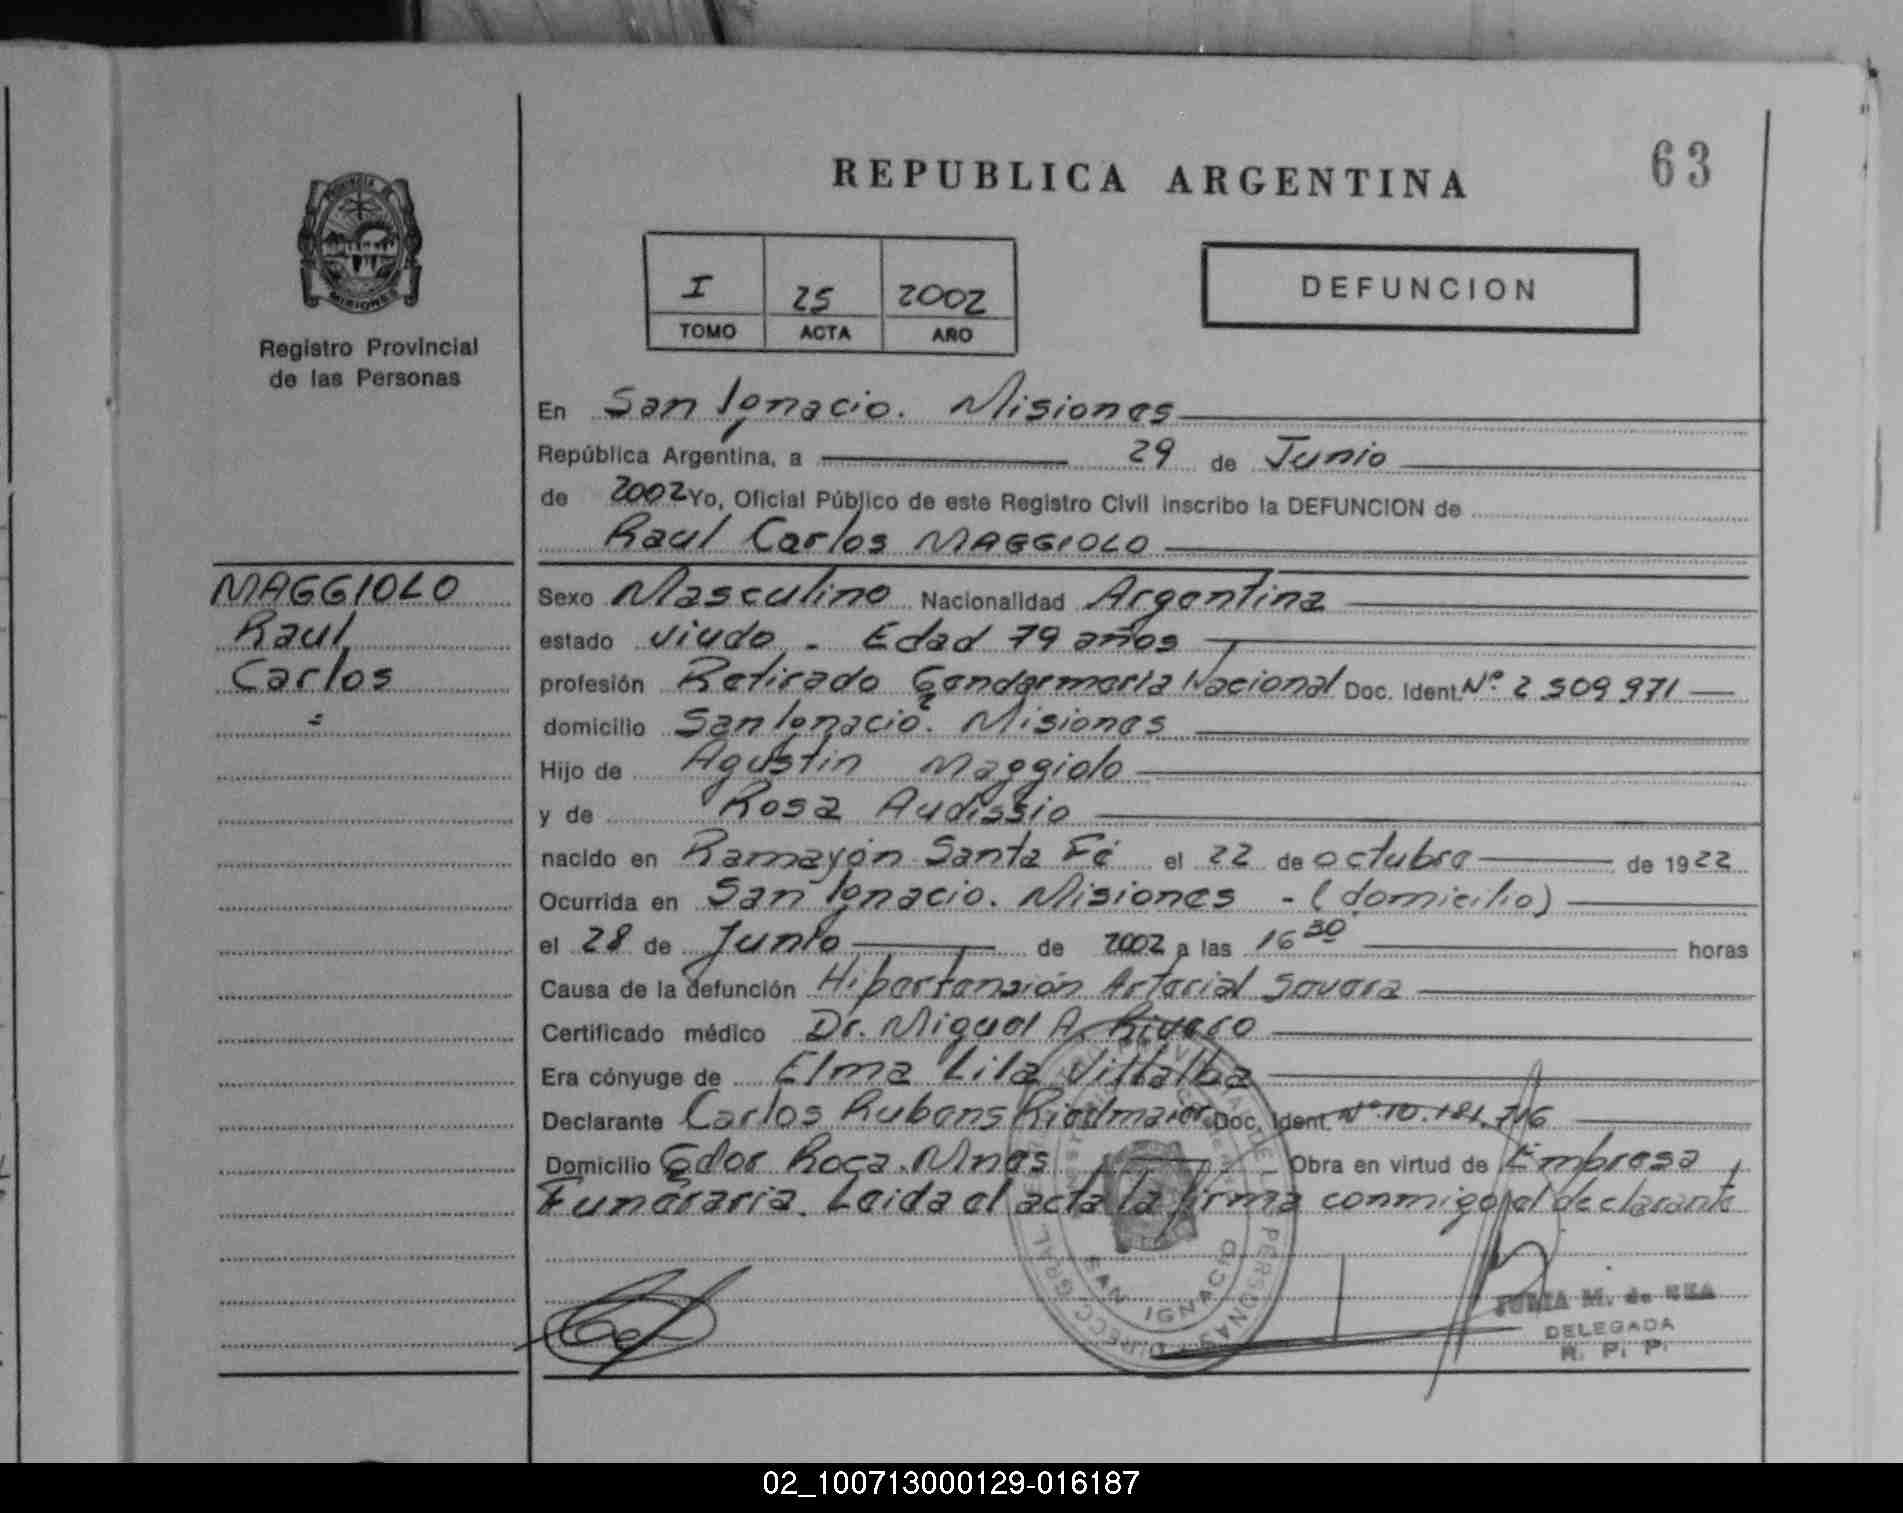 63
REPUBLICA ARGENTINA
PROVINCIA DE
MISIONES
Registro Provincial
de las Personas
I 25 2002
TOMO ACTA AÑO
DEFUNCION
En San Ignacio. Misiones
República Argentina, a 29 de Junio
de 2002 Yo, Oficial Público de este Registro Civil inscribo la DEFUNCION de
Raul Carlos MAGGIOLO
MAGGIOLO
Raul
Carlos
Sexo Masculino Nacionalidad Argentina
estado viudo. Edad 79 años
profesión Retirado Gendarmeria Nacional Doc. Ident. Nº 2 509 971
domicilio San Ignacio. Misiones
Hijo de Agustin Maggiolo
y de Rosa Audissio
nacido en Ramayón Santa Fé el 22 de octubre de 1922
Ocurrida en San Ignacio. Misiones - (domicilio)
el 28 de Junio de 2002 a las 16 30 horas
Causa de la defunción Hipertensión Arterial Severa
Certificado médico Dr. Miguel A. Rivero
Era cónyuge de Elma Lila Villalba
Declarante Carlos Rubens Riedmaier Doc. Ident. Nº 10.181.716
Domicilio Gdor Roca. Mnes Obra en virtud de Empresa
Funeraria. Leida el acta la firma conmigo el declarante
SAN IGNACIO
M. de REA
DELEGADA
R. P. P.
02_100713000129-016187